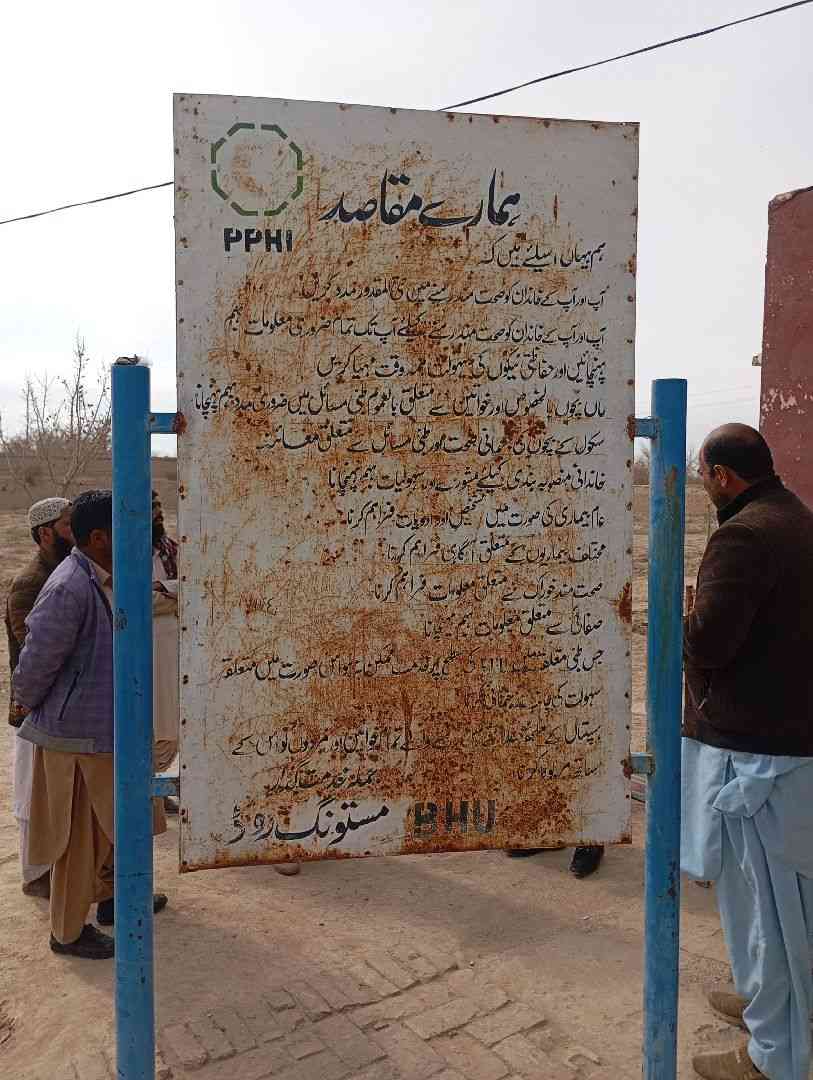 PPHI
ہمارے مقاصد
ہم یہاں اسلئے ہیں کہ
آپ اور آپ کے خاندان کو صحت مند رہنے میں حتی المقدور مدد کریں
آپ اور آپ کے خاندان کو صحت مند رہنے کیلئے آپ تک تمام ضروری معلومات بہم
پہنچائیں اور حفاظتی ٹیکوں کی سہولت ہمہ وقت مہیا کریں
ماں بچوں بالخصوص اور خواتین سے متعلق بالعموم طبی مسائل میں ضروری مدد بہم پہنچانا
سکول کے بچوں کی جسمانی صحت اور طبی مسائل سے متعلق معائنہ
خاندانی منصوبہ بندی کیلئے مشورے اور سہولیات بہم پہنچانا
عام بیماری کی صورت میں تشخیص اور ادویات فراہم کرنا
مختلف بیماریوں کے متعلق آگاہی فراہم کرنا
صحت مند خوراک سے متعلق معلومات فراہم کرنا
صفائی سے متعلق معلومات بہم پہنچانا
جس طبی کی سطح پر خدمت ممکن نہ ہو اس صورت میں متعلقہ
سہولت کی جانب
ہسپتال کے والے تمام خواتین اور مردوں کو اس کے
ساتھ
مستونگ روڈ BHU